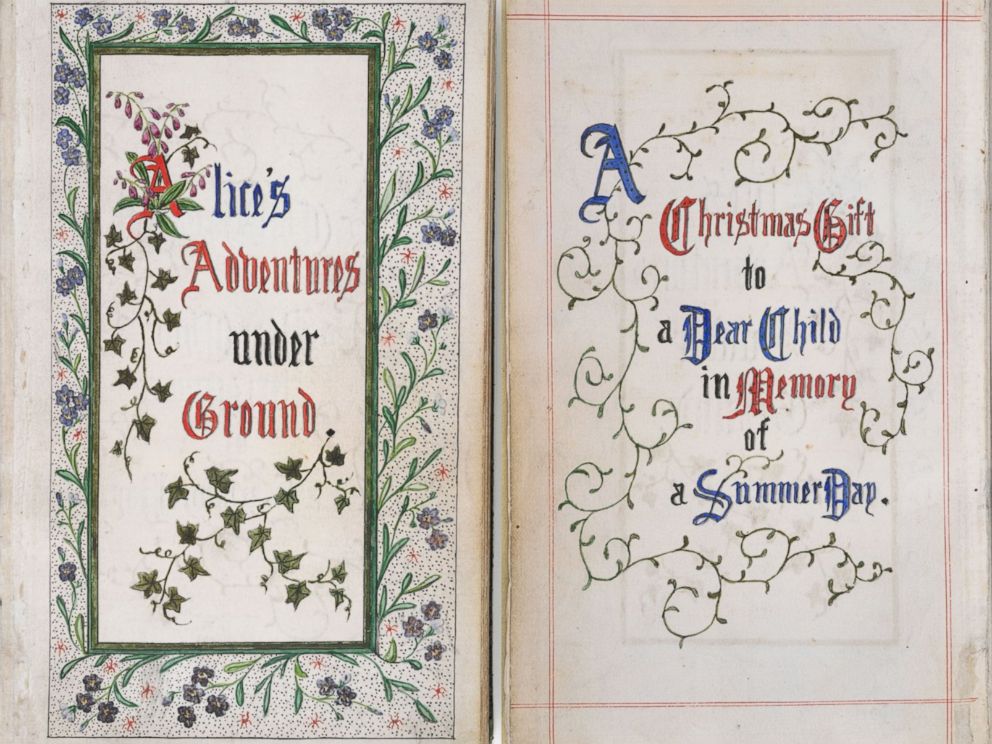 Alice's
Adventures
under
Ground.
A
Christmas Gift
to
a Dear Child
in Memory
of
a Summer Day.